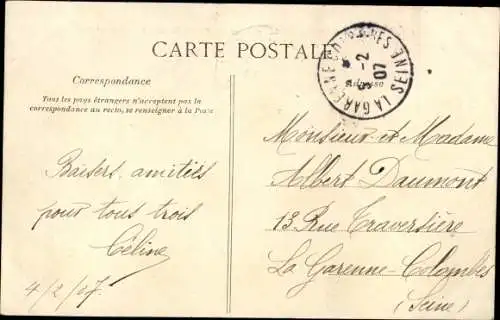 CARTE POSTALE
Correspondance
Tous les pays étrangers n'acceptent pas la
correspondance au recto, se renseigner à la Poste
Baisers, amitiés
pour tous trois
Céline
4/2/07.
LA GARENNE-COLOMBES SEINE
-2
07
Adresse
Monsieur et Madame
Albert Daumont
13 Rue Traversière
La Garenne-Colombes
(Seine)